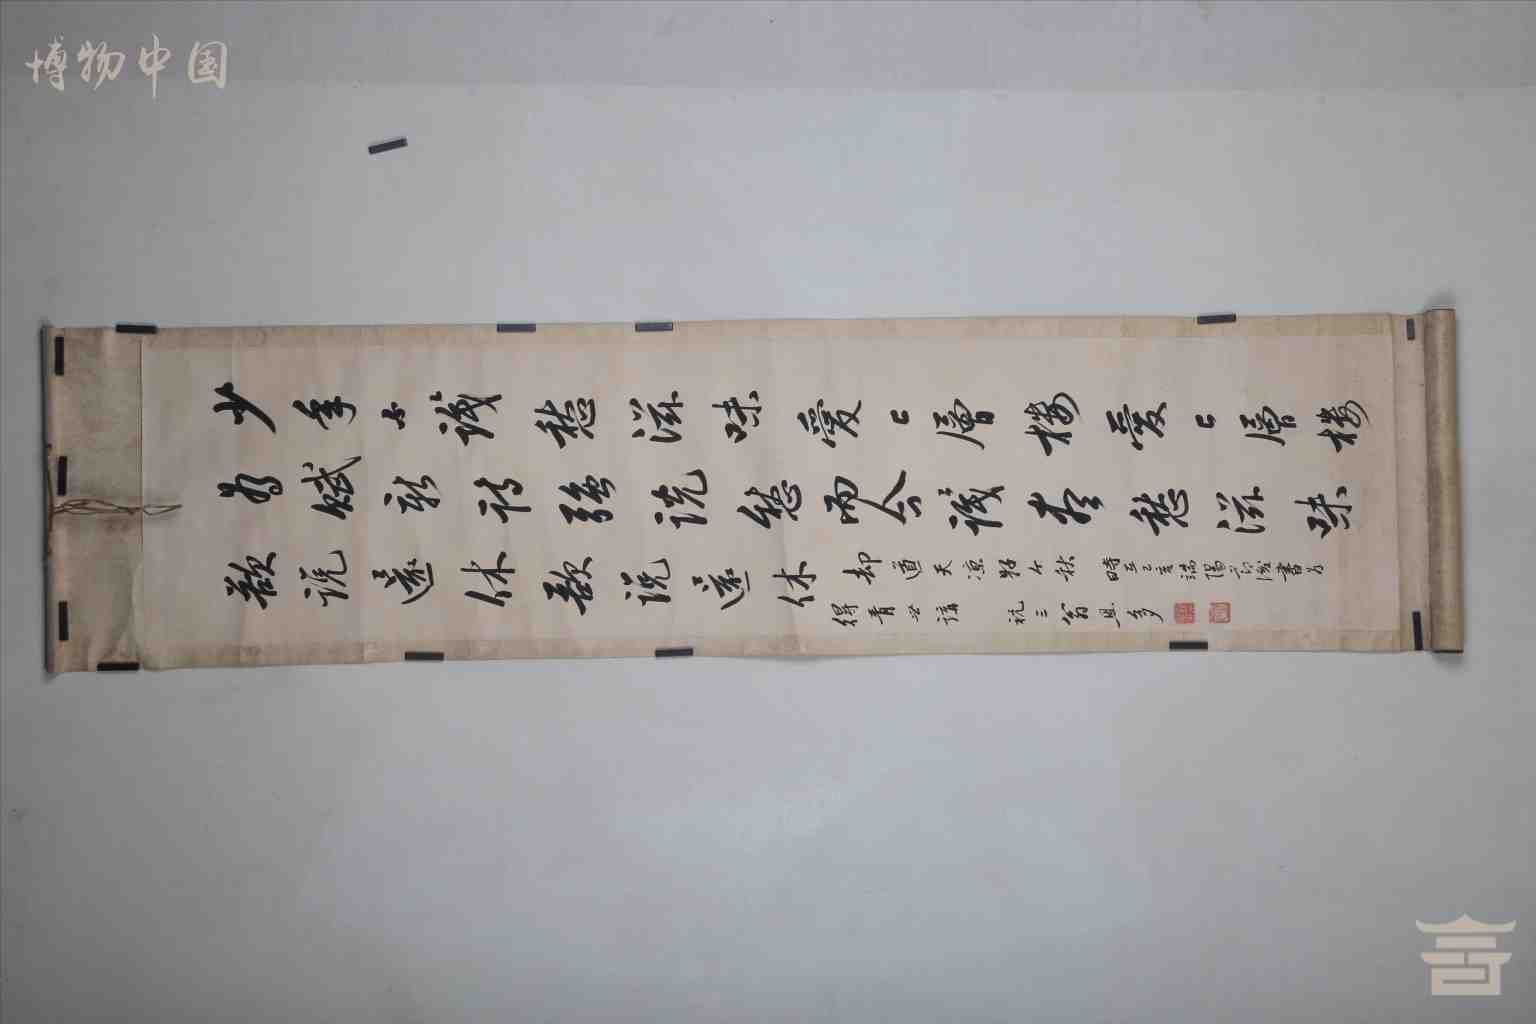 博物中国
少年不識愁滋味愛上層樓愛上層樓
為賦新詞強説愁而今識盡愁滋味
欲説還休欲説還休却道天凉好个秋 時亥端陽書
祝三